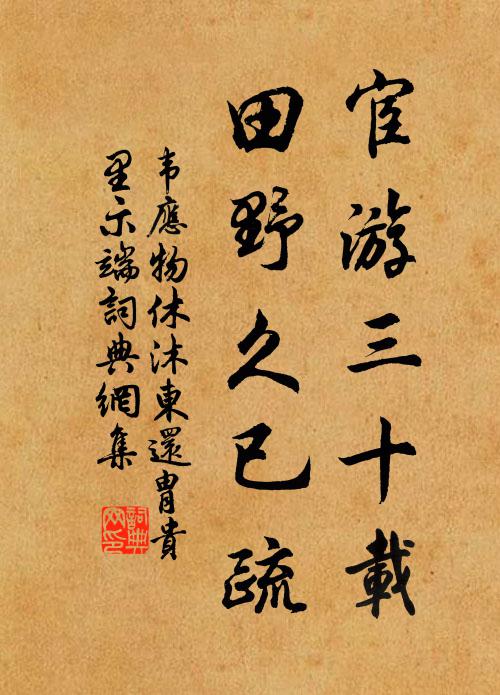 宦游三十載
田野久已疏
韦應物休沐東還胄貴
里示端詞典網集
詞典
网印